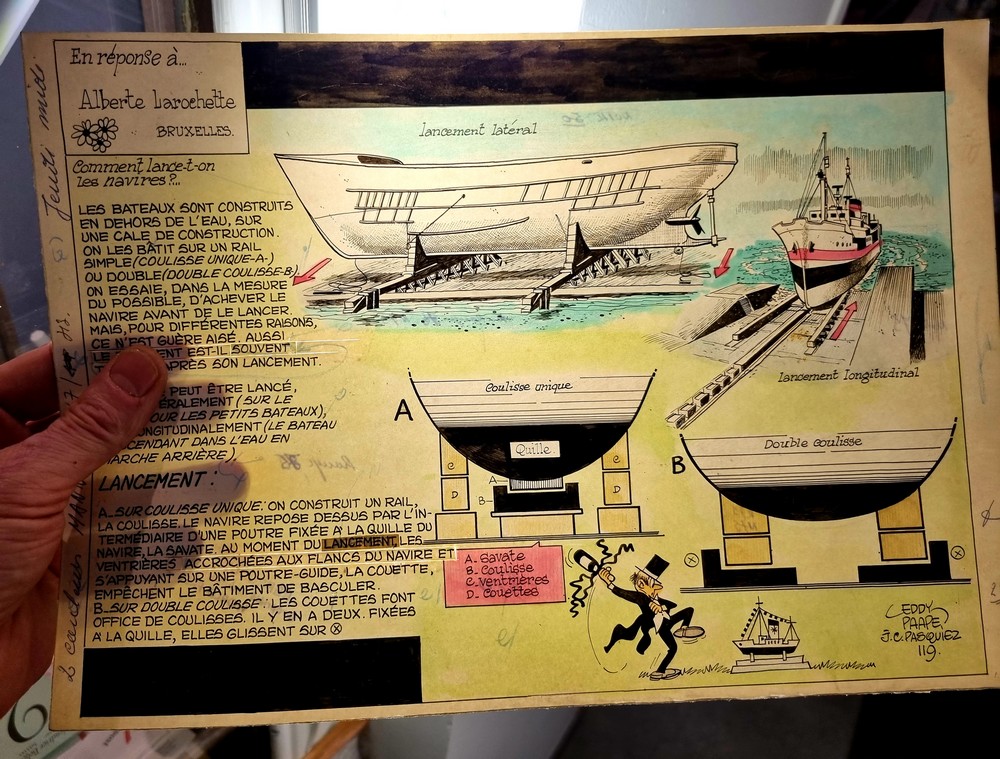 En réponse à...
Alberte Larochette
BRUXELLES.
Comment lance-t-on
les navires?...
LES BATEAUX SONT CONSTRUITS
EN DEHORS DE L'EAU, SUR
UNE CALE DE CONSTRUCTION.
ON LES BÂTIT SUR UN RAIL
SIMPLE (COULISSE UNIQUE-A-)
OU DOUBLE (DOUBLE COULISSE-B)
ON ESSAIE, DANS LA MESURE
DU POSSIBLE, D'ACHEVER LE
NAVIRE AVANT DE LE LANCER.
MAIS, POUR DIFFÉRENTES RAISONS,
CE N'EST GUÈRE AISÉ. AUSSI
EST-IL SOUVENT
APRÈS SON LANCEMENT.
PEUT ÊTRE LANCÉ,
(SUR LE
POUR LES PETITS BATEAUX),
(LE BATEAU
DANS L'EAU EN
ARRIÈRE)
LANCEMENT :
A. SUR COULISSE UNIQUE: ON CONSTRUIT UN RAIL,
LA COULISSE. LE NAVIRE REPOSE DESSUS PAR L'IN-
TERMÉDIAIRE D'UNE POUTRE FIXÉE À LA QUILLE DU
NAVIRE, LA SAVATE. AU MOMENT DU LANCEMENT, LES
VENTRIÈRES ACCROCHÉES AUX FLANCS DU NAVIRE ET
S'APPUYANT SUR UNE POUTRE-GUIDE, LA COUETTE,
EMPÊCHENT LE BÂTIMENT DE BASCULER.
B. SUR DOUBLE COULISSE: LES COUETTES FONT
OFFICE DE COULISSES. IL Y EN A DEUX. FIXÉES
À LA QUILLE, ELLES GLISSENT SUR ⓧ
Jeudi midi
lancement latéral
lancement longitudinal
A
Coulisse unique
Quille.
C
C
D
D
A
B
B
Double coulisse
ⓧ
ⓧ
A. Savate
B. Coulisse
C. Ventrières
D. Couettes
EDDY
PAAPE,
J.C. PASQUIEZ
119.